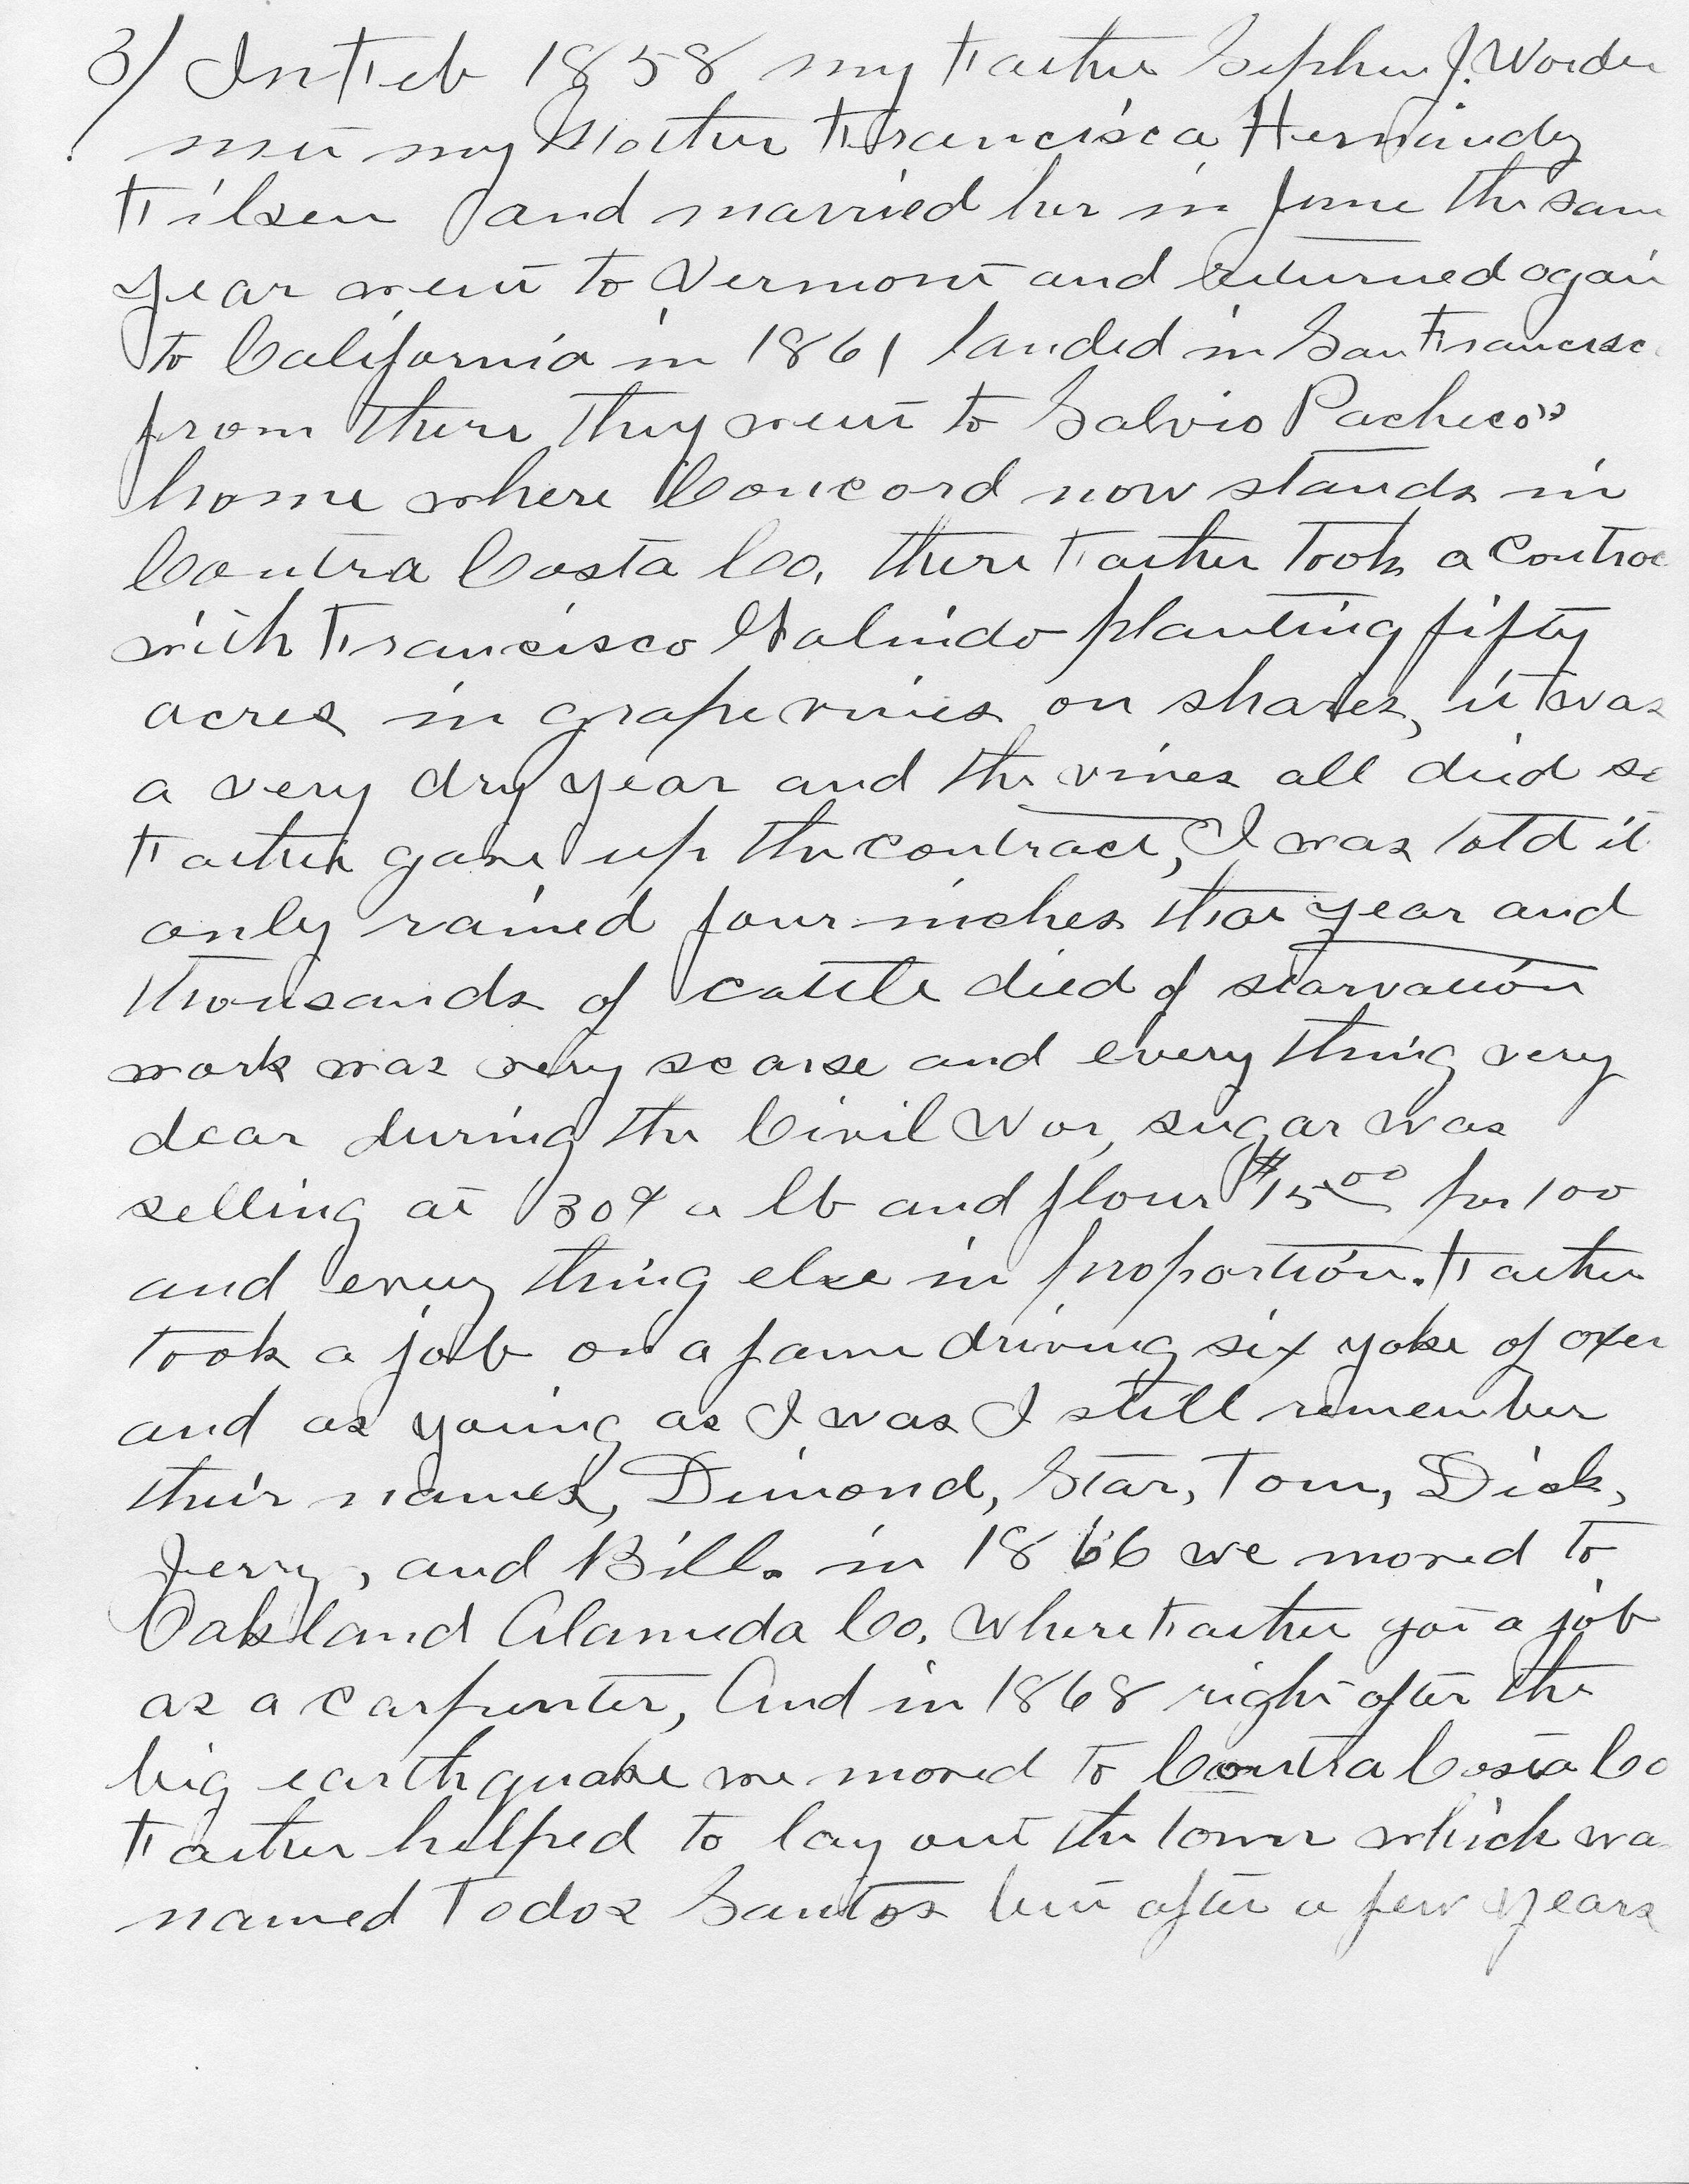 3/ In Feb 1858 my Father Sephen J. Worden
met my Mother Francisca Hernandez
Filsen and married her in June the same
year went to Vermont and returned again
to California in 1861 landed in San Francisc
from there they went to Salvio Pacheco's
home where Concord now stands in
Contra Costa Co. there Father took a Contrac
with Francisco Galindo planting fifty
acres in grape vines on shares, it was
a very dry year and the vines all died so
Father gave up the contract, I was told it
only rained four inches that year and
thousands of cattle died of starvation
work was very scarse and every thing very
dear during the Civil War, sugar was
selling at 30¢ a lb and flour $15.00 per 100
and every thing else in proportion. Father
took a job on a farm driving six yoke of oxen
and as young as I was I still remember
their names, Dimond, Star, Tom, Dick,
Jerry, and Bill. in 1866 we moved to
Oakland Alameda Co. where Father got a job
as a carpenter, And in 1868 right after the
big earthquake we moved to Contra Costa Co
Father helped to lay out the town which wa
named Todos Santos but after a few years